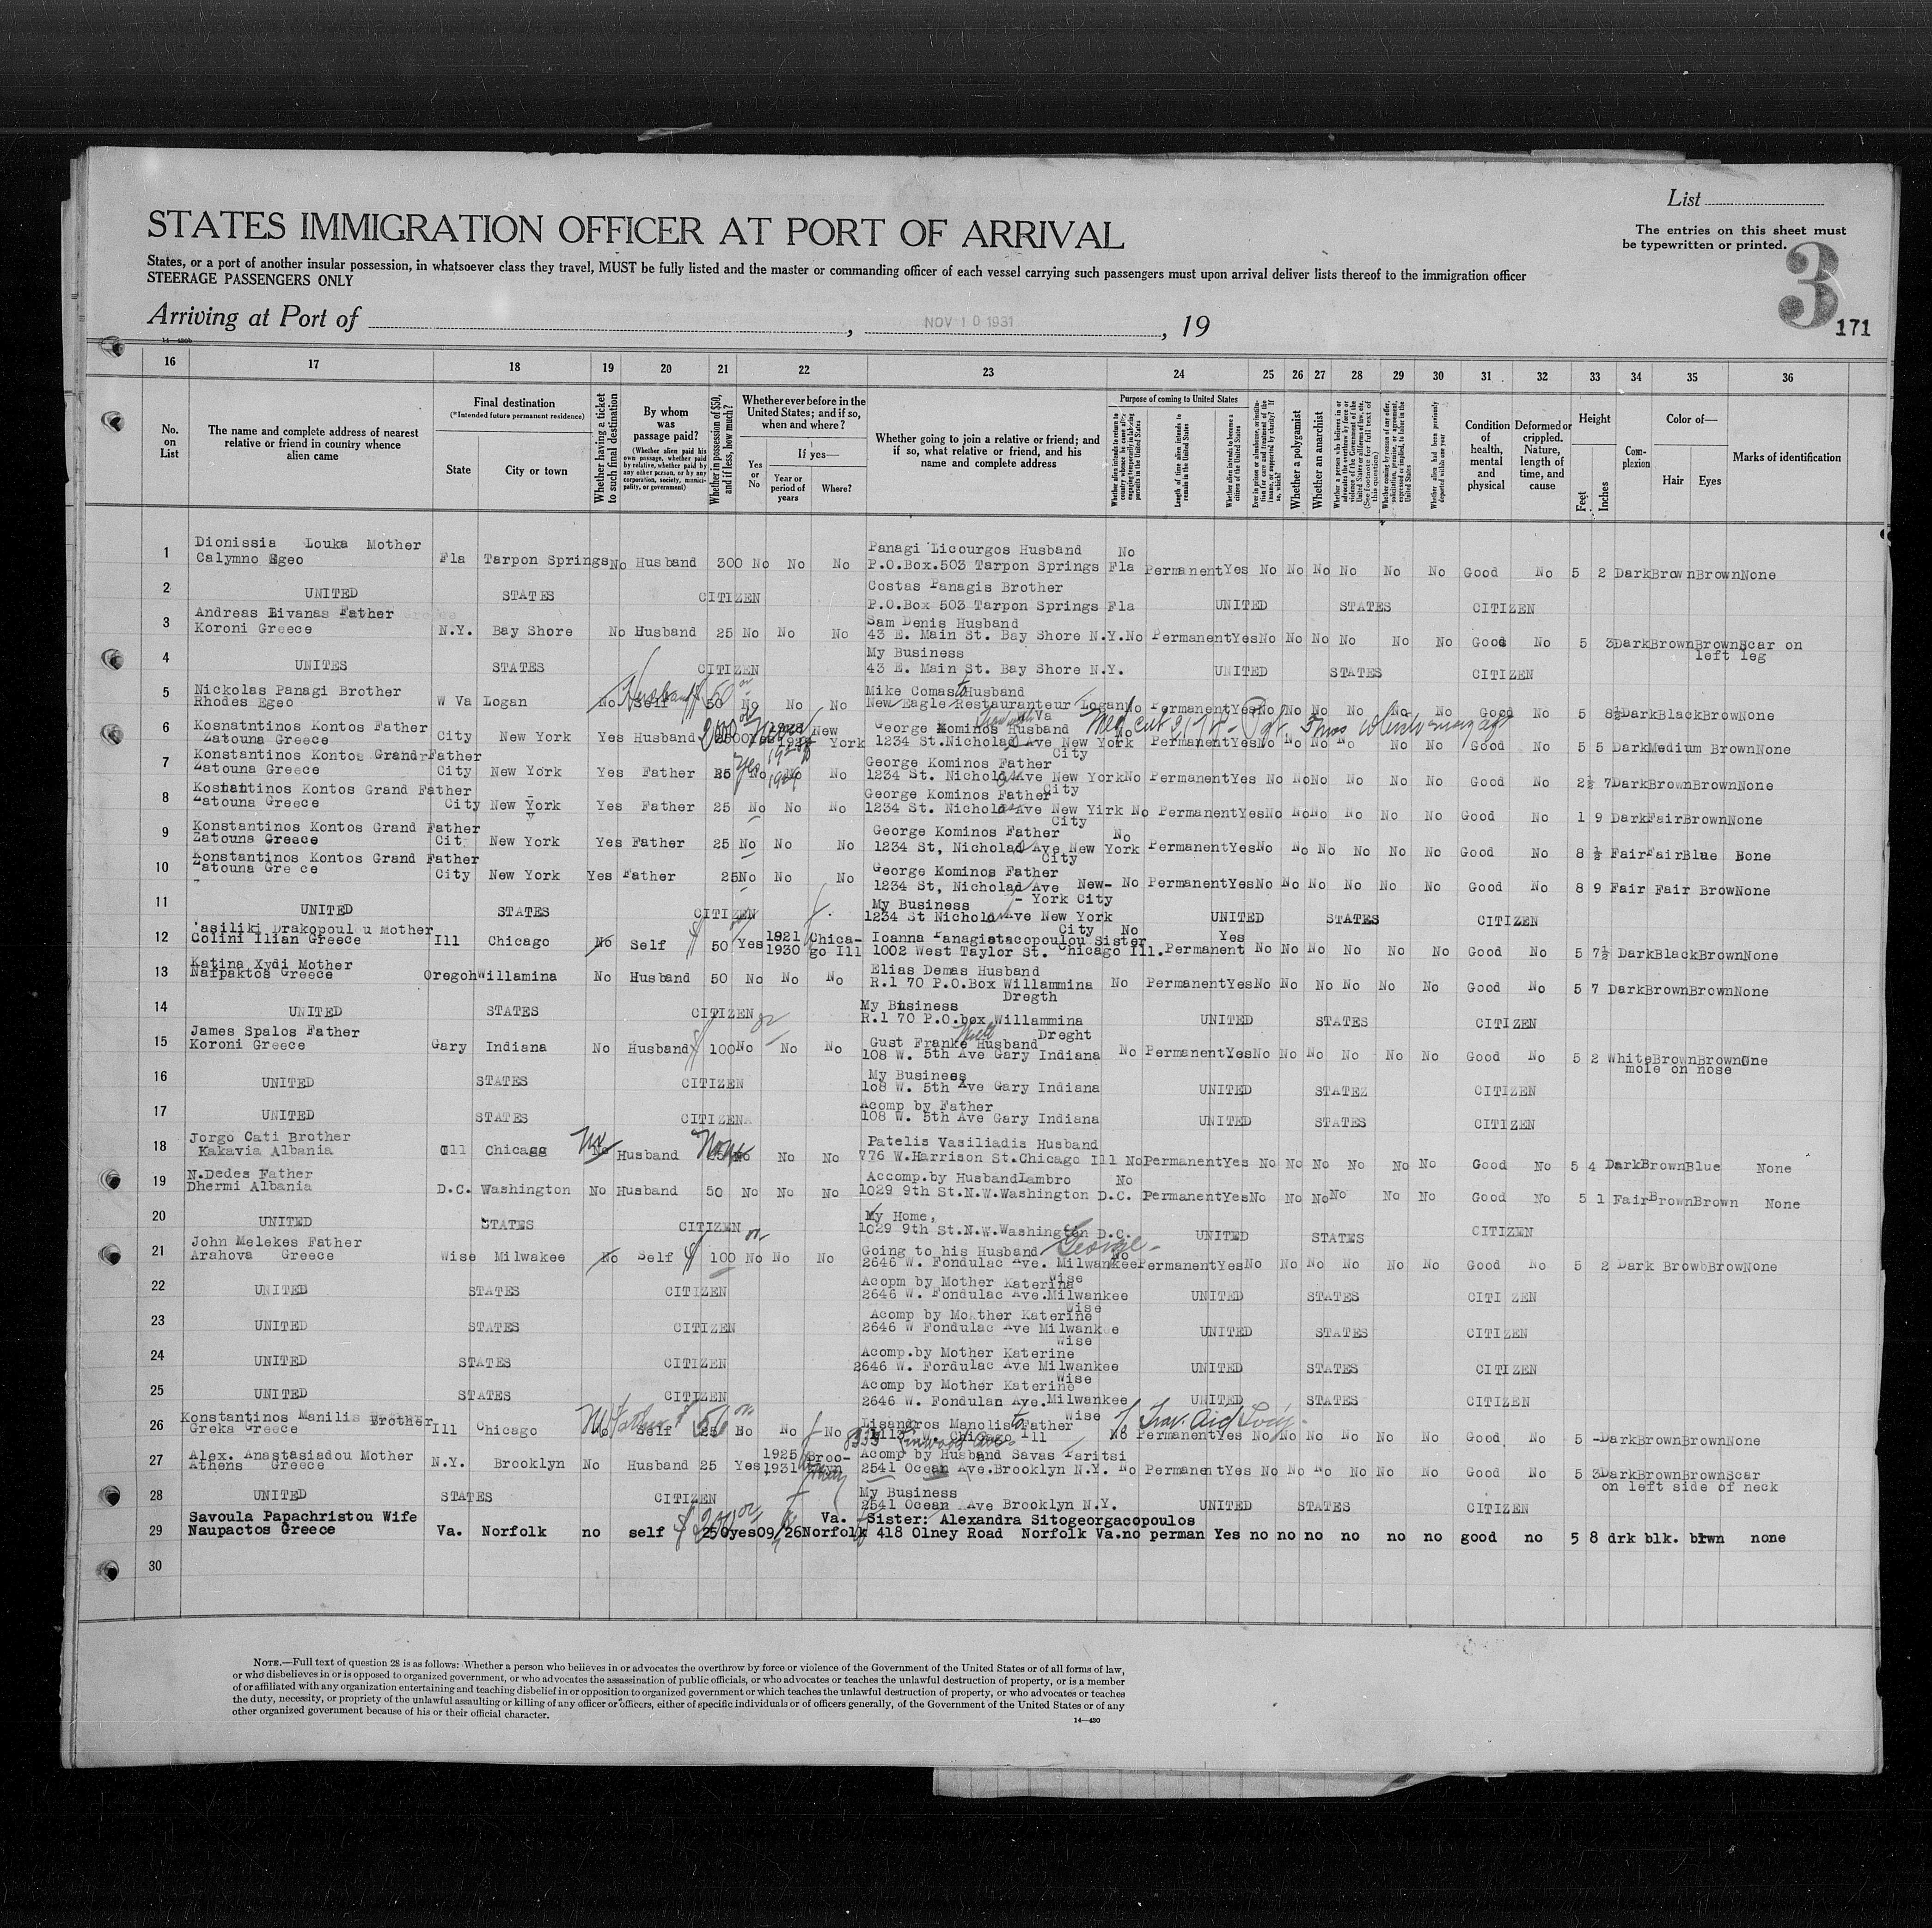 List
The entries on this sheet must
be typewritten or printed.
3
171
STATES IMMIGRATION OFFICER AT PORT OF ARRIVAL
States, or a port of another insular possession, in whatsoever class they travel, MUST be fully listed and the master or commanding officer of each vessel carrying such passengers must upon arrival deliver lists thereof to the immigration officer
STEERAGE PASSENGERS ONLY
Arriving at Port of , NOV 10 1931 , 19
16 17 18 19 20 21 22 23 24 25 26 27 28 29 30 31 32 33 34 35 36
No. on List
The name and complete address of nearest relative or friend in country whence alien came
Final destination
(*Intended future permanent residence)
State
City or town
Whether having a ticket to such final destination
By whom was passage paid?
(Whether alien paid his own passage, whether paid by relative, whether paid by any other person, or by any corporation, society, municipality, or government)
Whether in possession of $50, and if less, how much?
Whether ever before in the United States; and if so, when and where?
Yes or No
If yes—
Year or period of years
Where?
Whether going to join a relative or friend; and if so, what relative or friend, and his name and complete address
Purpose of coming to United States
Length of time alien intends to remain in the United States
Whether alien intends to become a citizen of the United States
Whether a polygamist
Whether an anarchist
Condition of health, mental and physical
Deformed or crippled. Nature, length of time, and cause
Height
Feet
Inches
Complexion
Color of—
Hair
Eyes
Marks of identification
1 Dionissia Louka Mother Panagi Licourgos Husband No
Calymno Egeo Fla Tarpon Springs No Husband 300 No No No P.O.Box.503 Tarpon Springs Fla Permanent Yes No No No No No No Good No 5 2 Dark Brown Brown None
2 Costas Panagis Brother
UNITED STATES CITIZEN P.O.Box 503 Tarpon Springs Fla UNITED STATES CITIZEN
3 Andreas Livanas Father Sam Denis Husband
Koroni Greece N.Y. Bay Shore No Husband 25 No No No 43 E. Main St. Bay Shore N.Y. No Permanent Yes No No No No No No Good No 5 3 Dark Brown Brown Scar on
left leg
4 My Business
UNITES STATES CITIZEN 43 E. Main St. Bay Shore N.Y. UNITED STATES CITIZEN
5 Nickolas Panagi Brother Husband 50 Mike Comas to Husband
Rhodes Egeo W Va Logan No Self 50 No No No New Eagle Restauranteur Logan No Permanent Yes No No No No No No Good No 5 8½ Dark Black Brow None
Va
6 Kosnatntinos Kontos Father New George Kominos Husband No
Zatouna Greece City New York Yes Husband York 1234 St.Nicholad Ave New York Permanent Yes No No No No No No Good No 5 5 Dark Medium Brown None
City
7 Konstantinos Kontos Grand Father Yes George Kominos Father
Zatouna Greece City New York Yes Father 25 No No No 1234 St. Nichola Ave New York No Permanent Yes No No No No No No Good No 2½ 7 Dark Brown Brown None
City
8 Kosntantinos Kontos Grand Father George Kominos Father
Zatouna Greece City New York Yes Father 25 No No No 1234 St. Nichola Ave New Yirk No Permanent Yes No No No No No No Good No 1 9 Dark Fair Brown None
City
9 Konstantinos Kontos Grand Father George Kominos Father No
Zatouna Greece Cit New York Yes Father 25 No No No 1234 St, Nicholad Ave New York Permanent Yes No No No No No No Good No 8 ½ Fair Fair Blue Bone
City
10 Konstantinos Kontos Grand Father George Kominos Father
Zatouna Gre ce City New York Yes Father 25 No No No 1234 St, Nicholad Ave New- No Permanent Yes No No No No No No Good No 8 9 Fair Fair Brow None
- York City
11 My Business
UNITED STATES CITIZEN 1234 St Nichola Ave New York UNITED STATES CITIZEN
City
12 Vasiliki Drakopoulou Mother 1921 Chica- Ioanna Panagiotacopoulou Sister No Yes
Colini Ilian Greece Ill Chicago No Self $ 50 Yes 1930 go Ill 1002 West Taylor St. Chicago Ill. Permanent No No No No No No Good No 5 7½ Dark Black Brown None
13 Katina Xydi Mother Elias Demas Husband
Nafpaktos Greece Oregon Willamina No Husband 50 No No No R.1 70 P.O.Box Willammina No Permanent Yes No No No No No No Good No 5 7 Dark Brown Brown None
Dregth
14 My Business
UNITED STATES CITIZEN R.1 70 P.O.box Willammina UNITED STATES CITIZEN
Dreght
15 James Spalos Father Gust Franke Husband
Koroni Greece Gary Indiana No Husband $ 100 No No No 108 W. 5th Ave Gary Indiana No Permanent Yes No No No No No No Good No 5 2 White Brown Brown One
mole on nose
16 My Business
UNITED STATES CITIZEN 108 W. 5th Ave Gary Indiana UNITED STATEZ CITIZEN
17 Acomp by Father
UNITED STATES CITIZEN 108 W. 5th Ave Gary Indiana UNITED STATES CITIZEN
18 Jorgo Cati Brother None Patelis Vasiliadis Husband
Kakavia Albania Ill Chicago No Husband No No No 776 W.Harrison St.Chicago Ill No Permanent Yes No No No No No No Good No 5 4 Dark Brown Blue None
19 N.Dedes Father Accomp.by Husband Lambro No
Dhermi Albania D.C. Washington No Husband 50 No No No 1029 9th St.N.W.Washington D.C. Permanent Yes No No No No No No Good No 5 1 Fair Brown Brown None
20 My Home,
UNITED STATES CITIZEN 1029 9th St.N.W.Washington D.C. UNITED STATES CITIZEN
21 John Melekes Father Going to his Husband George No
Arahova Greece Wise Milwakee No Self $ 100 No No No 2646 W. Fondulac Ave. Milwankee Permanent Yes No No No No No No Good No 5 2 Dark Brow Brow None
Wise
22 Acopm by Mother Katerina
UNITED STATES CITIZEN 2646 W. Fondulac Ave.Milwankee UNITED STATES CITI ZEN
Wise
23 Acomp by Mother Katerine
UNITED STATES CITIZEN 2646 W Fondulac Ave Milwankee UNITED STATES CITIZEN
Wise
24 Acomp.by Mother Katerine
UNITED STATES CITIZEN 2646 W. Fordulac Ave Milwankee UNITED STATES CITIZEN
Wise
25 Acomp by Mother Katerine
UNITED STATES CITIZEN 2646 W. Fondulan Ave.Milwankee UNITED STATES CITIZEN
Wise
26 Konstantinos Manilis Brother Father $ 50 Lisandros Manolis to Father Trav. Aid Socy.
Greka Greece Ill Chicago No Self 25 No No No Chicago Ill No Permanent Yes No No No No No No Good No 5 - Dark Brown Brown None
27 Alex. Anastasiadou Mother 1925 Broo- Acomp by Husband Savas Paritsi
Athens Greece N.Y. Brooklyn No Husband 25 Yes 1931 2541 Ocean Ave.Brooklyn N.Y. No Permanent Yes No No No No No No Good No 5 3 Dark Brown Brown Scar
on left side of neck
28 My Business
UNITED STATES CITIZEN 2541 Ocean Ave Brooklyn N.Y. UNITED STATES CITIZEN
29 Savoula Papachristou Wife Va. Sister: Alexandra Sitogeorgacopoulos
Naupactos Greece Va. Norfolk no self $ 200 250 yes 09/26 Norfolk 418 Olney Road Norfolk Va. no perman Yes no no no no no no good no 5 8 drk blk. brwn none
30
NOTE.—Full text of question 28 is as follows: Whether a person who believes in or advocates the overthrow by force or violence of the Government of the United States or of all forms of law,
or who disbelieves in or is opposed to organized government, or who advocates the assassination of public officials, or who advocates or teaches the unlawful destruction of property, or is a member
of or affiliated with any organization entertaining and teaching disbelief in or opposition to organized government or which teaches the unlawful destruction of property, or who advocates or teaches
the duty, necessity, or propriety of the unlawful assaulting or killing of any officer or officers, either of specific individuals or of officers generally, of the Government of the United States or of any
other organized government because of his or their official character.
14—430